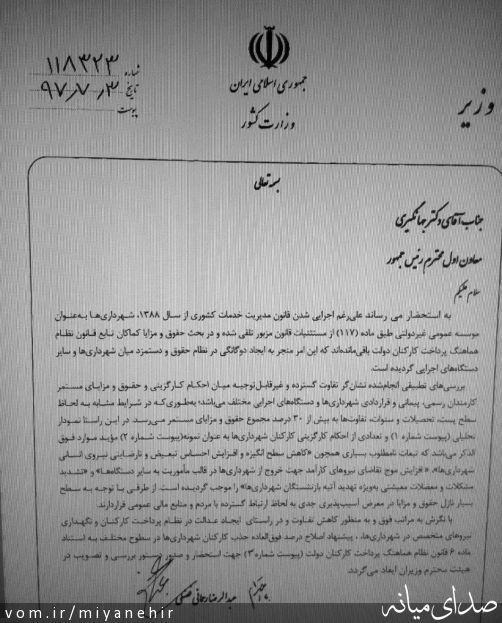 شماره ۱۱۸۳۲۳
تاریخ ۹۷٫۷٫۳
پیوست
جمهوری اسلامی ایران
وزارت کشور
وزیر
بسمه تعالی
جناب آقای دکتر جهانگیری
معاون اول محترم رئیس جمهور
سلام علیکم
به استحضار می رساند علی‌رغم اجرایی شدن قانون مدیریت خدمات کشوری از سال ۱۳۸۸، شهرداری‌ها به‌عنوان
موسسه عمومی غیردولتی طبق ماده (۱۱۷) از مستثنیات قانون مزبور تلقی شده و در بحث حقوق و مزایا کماکان تابع قانون نظام
هماهنگ پرداخت کارکنان دولت باقی‌مانده‌اند که این امر منجر به ایجاد دوگانگی در نظام حقوق و دستمزد میان شهرداری‌ها و سایر
دستگاه‌های اجرایی گردیده است.
بررسی‌های تطبیقی انجام‌شده نشان‌گر تفاوت گسترده و غیرقابل‌توجیه میان احکام کارگزینی و حقوق و مزایای مستمر
کارمندان رسمی، پیمانی و قراردادی شهرداری‌ها و دستگاه‌های اجرایی مختلف می‌باشد؛ به‌طوری‌که در شرایط مشابه به لحاظ
سطح پست، تحصیلات و سنوات، تفاوت‌ها به بیش از ۳۰ درصد مجموع حقوق و مزایای مستمر می‌رسد. در این راستا نمودار
تحلیلی (پیوست شماره ۱) و تعدادی از احکام کارگزینی کارکنان شهرداری‌ها به عنوان نمونه(پیوست شماره ۲) مؤید موارد فوق
الذکر می‌باشد که تبعات نامطلوب بسیاری همچون «کاهش سطح انگیزه و افزایش احساس تبعیض و نارضایتی نیروی انسانی
شهرداری‌ها»، «افزایش موج تقاضای نیروهای کارآمد جهت خروج از شهرداری‌ها در قالب مأموریت به سایر دستگاهها» و «تشدید
مشکلات و معضلات معیشتی به‌ویژه تهدید آتیه بازنشستگان شهرداری‌ها» را موجب گردیده است. از طرفی با توجه به سطح
بسیار نازل حقوق و مزایا در معرض آسیب‌پذیری جدی به لحاظ ارتباط گسترده با مردم و منابع مالی عمومی قراردارند.
با نگرش به مراتب فوق و به منظور کاهش تفاوت و در راستای ایجاد عدالت در نظام پرداخت کارکنان و نگهداری
نیروهای متخصص در شهرداری‌ها، پیشنهاد اصلاح درصد فوق‌العاده جذب کارکنان شهرداری‌ها در سطوح مختلف به استناد
ماده ۶ قانون نظام هماهنگ پرداخت کارکنان دولت (پیوست شماره۳) جهت استحضار و صدور دستور بررسی و تصویب در
هیئت محترم وزیران ایفاد می‌گردد.
عبدالرضا رحمانی فضلی
vom.ir/miyanehir
صدای میانه